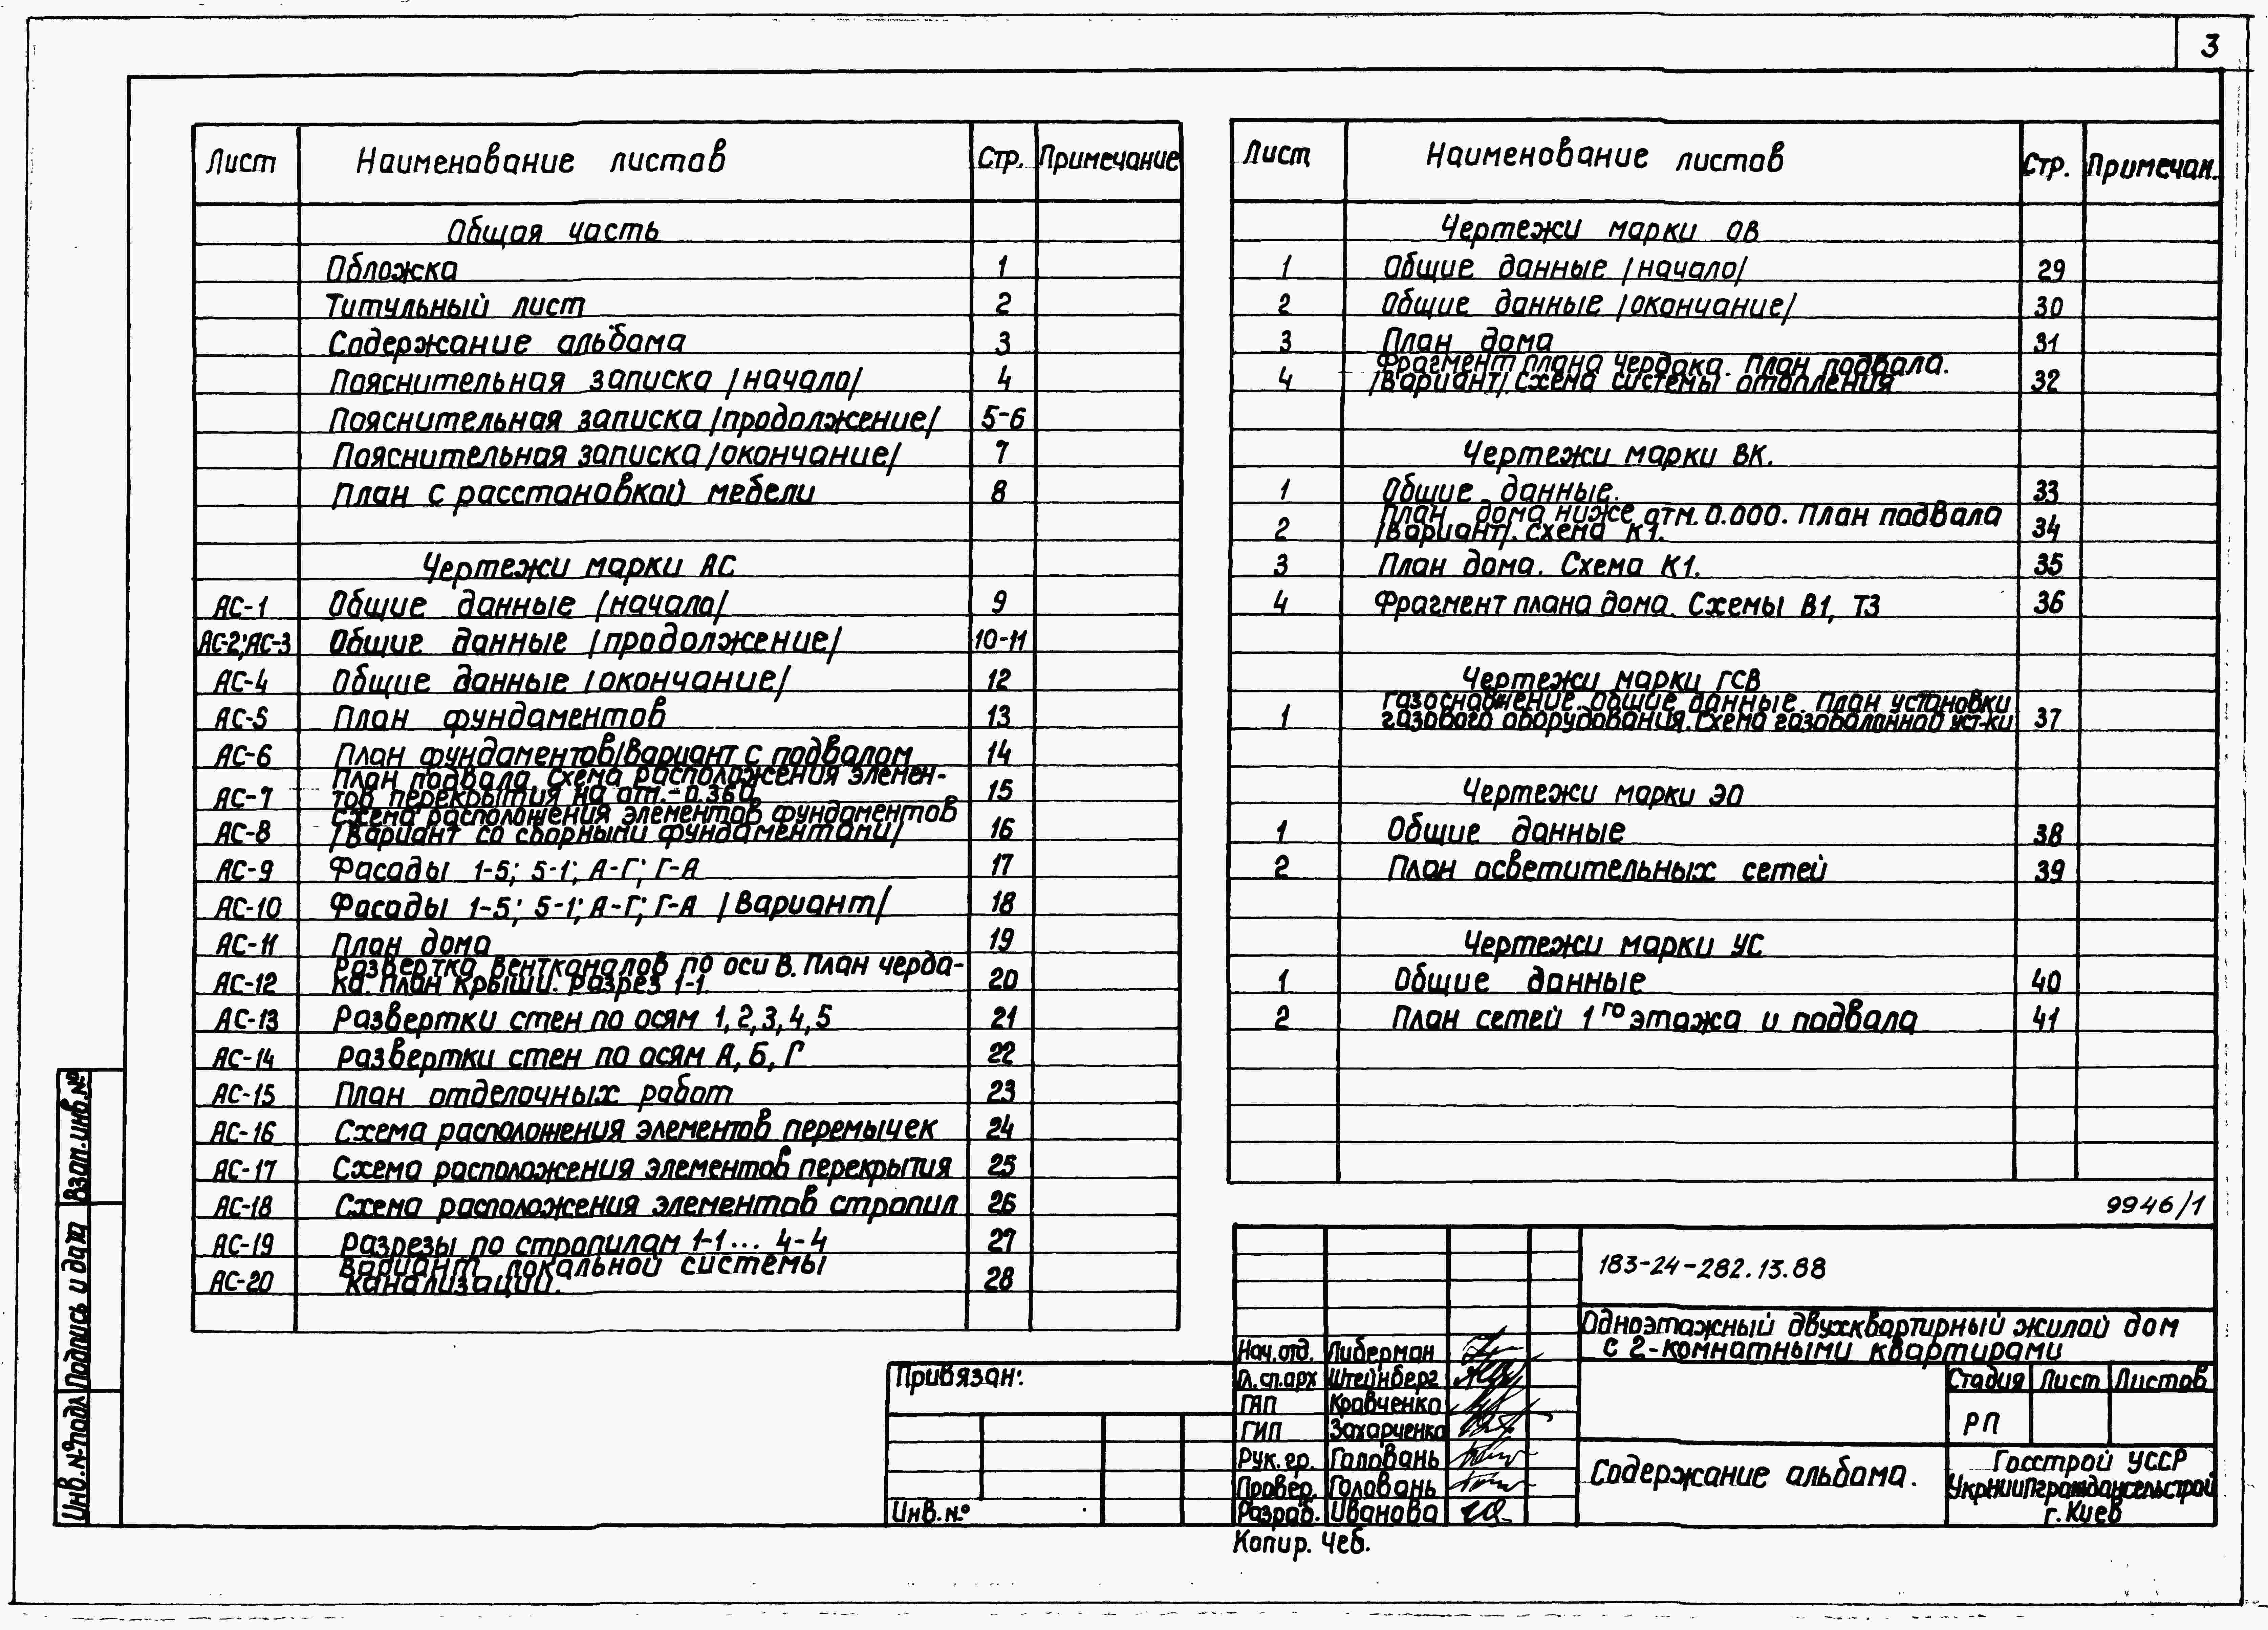 3
Лист Наименование листов Стр. Примечание
Общая часть
Обложка 1
Титульный лист 2
Содержание альбома 3
Пояснительная записка /начало/ 4
Пояснительная записка /продолжение/ 5-6
Пояснительная записка /окончание/ 7
План с расстановкой мебели 8
Чертежи марки АС
АС-1 Общие данные /начало/ 9
АС-2; АС-3 Общие данные /продолжение/ 10-11
АС-4 Общие данные /окончание/ 12
АС-5 План фундаментов 13
АС-6 План фундаментов/вариант с подвалом 14
План подвала. Схема расположения элемен-
АС-7 тов перекрытия на от.-0.360 15
Схема расположения элементов фундаментов
АС-8 /Вариант со сборными фундаментами/ 16
АС-9 Фасады 1-5; 5-1; А-Г; Г-А 17
АС-10 Фасады 1-5; 5-1; А-Г; Г-А /Вариант/ 18
АС-11 План дома 19
Развертка вентканалов по оси В. План черда-
АС-12 ка. План крыши. Разрез 1-1. 20
АС-13 Развертки стен по осям 1,2,3,4,5 21
АС-14 Развертки стен по осям А, Б, Г 22
АС-15 План отделочных работ 23
АС-16 Схема расположения элементов перемычек 24
АС-17 Схема расположения элементов перекрытия 25
АС-18 Схема расположения элементов стропил 26
АС-19 Разрезы по стропилам 1-1... 4-4 27
Вариант локальной системы
АС-20 канализации. 28
Лист Наименование листов Стр. Примечан.
Чертежи марки ОВ
1 Общие данные /начало/ 29
2 Общие данные /окончание/ 30
3 План дома 31
Фрагмент плана чердака. План подвала.
4 /Вариант/. Схема системы отопления 32
Чертежи марки ВК.
1 Общие данные. 33
План дома ниже отм. 0.000. План подвала
2 /Вариант/. Схема К1. 34
3 План дома. Схема К1. 35
4 Фрагмент плана дома. Схемы В1, Т3 36
Чертежи марки ГСВ
Газоснабжение. Общие данные. План установки
1 газового оборудования. Схема газобалонной уст-ки 37
Чертежи марки ЭО
1 Общие данные 38
2 План осветительных сетей 39
Чертежи марки УС
1 Общие данные 40
2 План сетей 1го этажа и подвала 41
9946/1
183-24-282.13.88
Одноэтажный двухквартирный жилой дом
с 2-комнатными квартирами
Нач.отд. Либерман
Гл.сп.арх Штейнберг
ГАП Кравченко
ГИП Захарченко
Рук.гр. Головань
Провер. Головань
Разраб. Иванова
Стадия Лист Листов
РП
Содержание альбома.
Госстрой УССР
УкрНИИПграждансельстрой
г. Киев
Привязан:
Инв.№
Копир. Чеб.
Взап.инв.№
Подпись и дата
Инв.№подл